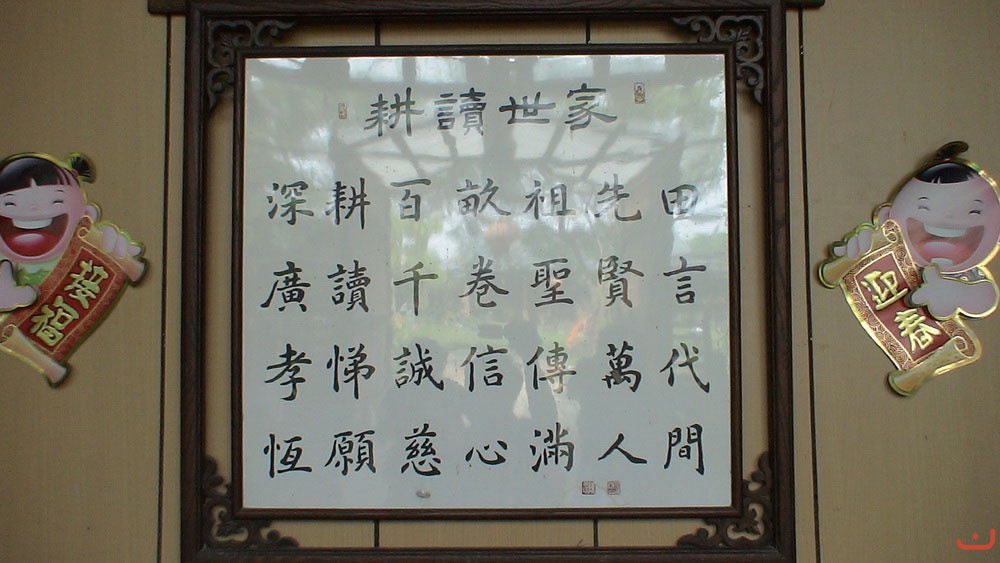 耕讀世家
深耕百畝祖先田
廣讀千卷聖賢言
孝悌誠信傳萬代
恆願慈心滿人間
接福
迎春